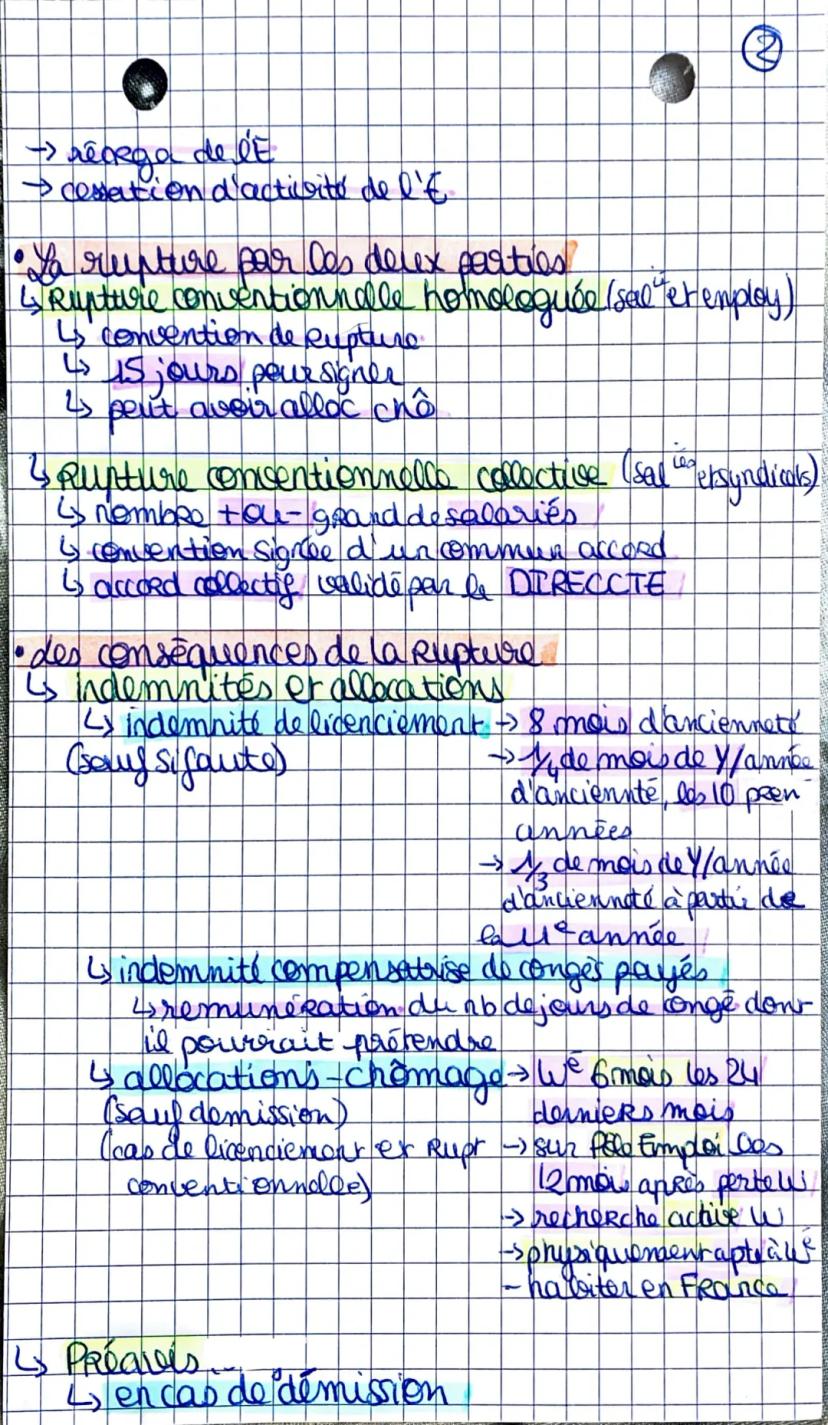 ②
→ réorga de l'E
→ cessation d'activité de l'E
• La rupture par les deux parties
↳ Rupture conventionnelle homologuée (salié et employ)
↳ convention de rupture
↳ 15 jours pour signer
↳ peut avoir alloc chô
↳ Rupture conventionnelle collective (saliés et syndicats)
↳ nombre + ou - grand de salariés
↳ convention signée d'un commun accord
↳ accord collectif validé par la DIRECCTE
• des conséquences de la Rupture
↳ indemnités et allocations
↳ indemnité de licenciement → 8 mois d'ancienneté
(sauf si faute) → 1/4 de mois de Y/année
d'ancienneté, les 10 pren
années
→ 1/3 de mois de Y/année
d'ancienneté à partir de
la 11e année
↳ indemnité compensatrise de congés payés
↳ remunération du nb de jours de congé dont
il pourrait prétendre
↳ allocations-chômage → Wé 6 mois les 24
(sauf demission) derniers mois
(cas de licenciement et Rupt → sur Pôle Emploi les
conventionnelle) 12 mois après perte W
→ recherche active W
→ physiquement apte à Wé
- habiter en France
↳ Préavis
↳ en cas de démission